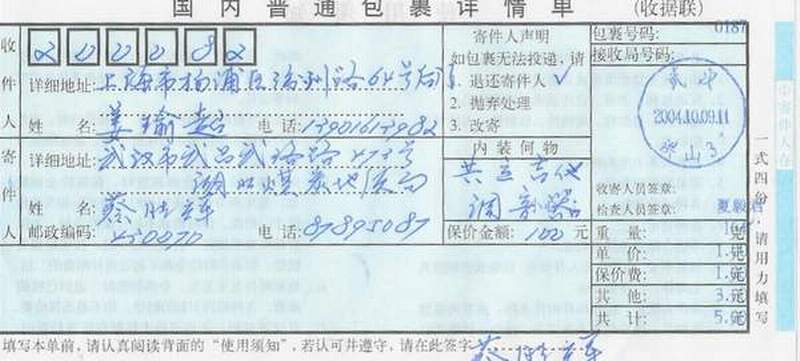 国内普通包裹详情单 (收据联)
0187
收件人
200082
详细地址:上海市杨浦区 路64号
姓 名:姜瑜 电 话:13901613982
寄件人
详细地址:武汉市武昌武珞路
湖北煤炭地质局
姓 名:蔡
邮政编码:430070 电 话:87895087
寄件人声明
如包裹无法投递,请
1. 退还寄件人 ✓
2. 抛弃处理
3. 改寄
内装何物
共立吉他
调音器
保价金额:100元
包裹号码:
接收局号码:
武汉
2004.10.09.11
收寄人员签章:
检查人员签章: 夏毅君
重 量: 克
单 价: 1.元
保价费: 1.元
其 他: 3.元
共 计: 5.元
一式四份,请用力填写
填写本单前,请认真阅读背面的“使用须知”,若认可并遵守,请在此签字 蔡